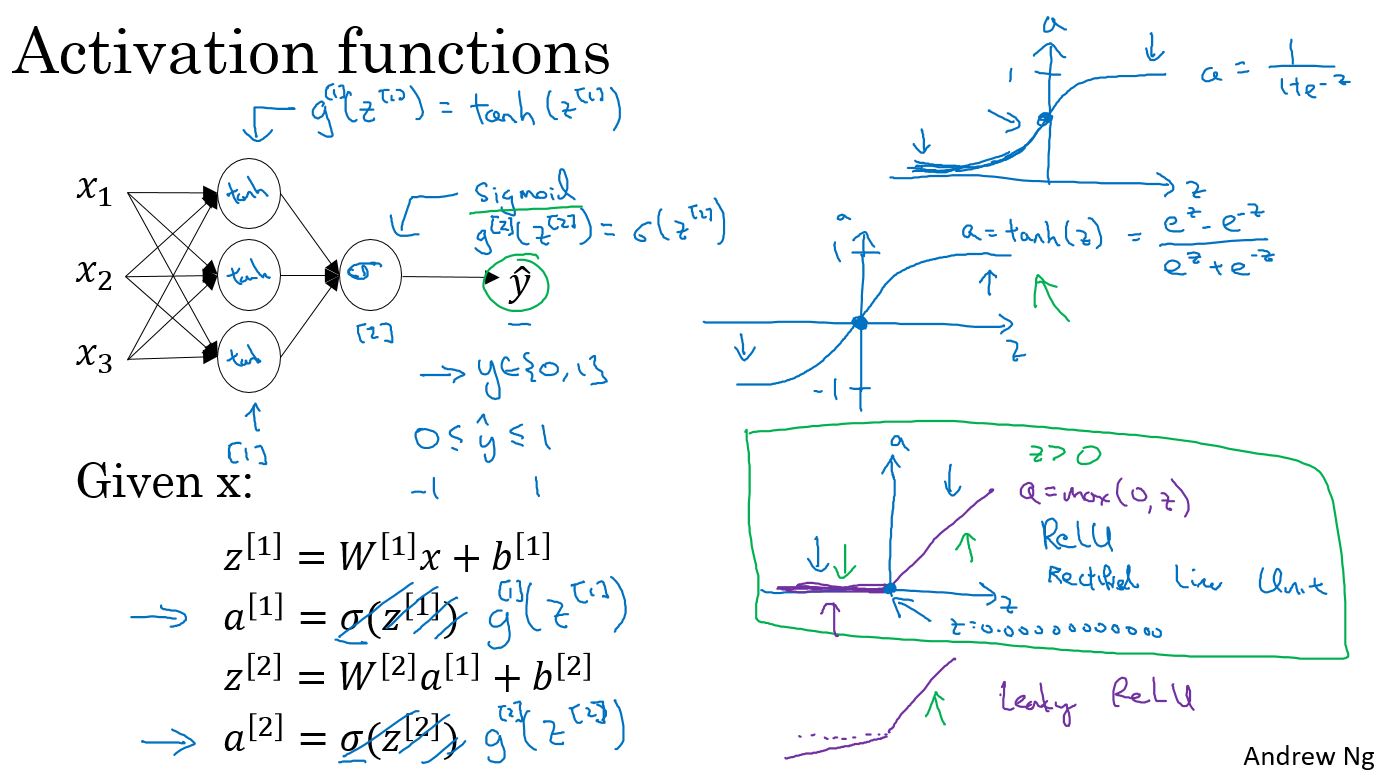 Activation functions
g^[1](z^[1]) = tanh(z^[1])
x₁
x₂
x₃
tanh
tanh
tanh
σ
[1]
[2]
sigmoid
g^[2](z^[2]) = σ(z^[2])
ŷ
→ y∈{0,1}
0 ≤ ŷ ≤ 1
-1 1
Given x:
z^[1] = W^[1]x + b^[1]
→ a^[1] = σ(z^[1]) g^[1](z^[1])
z^[2] = W^[2]a^[1] + b^[2]
→ a^[2] = σ(z^[2]) g^[2](z^[2])
a
1
z
a = 1/(1+e^-z)
a
1
-1
z
a = tanh(z) = (e^z - e^-z)/(e^z + e^-z)
a
z > 0
a = max(0, z)
ReLU
Rectified Linear Unit
z
z=0.00000000000
Leaky ReLU
Andrew Ng